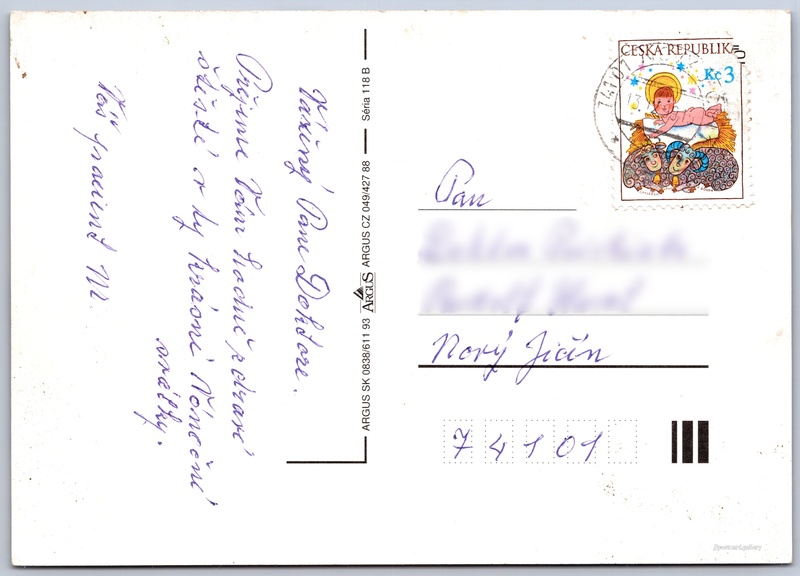 Vážený Pane Doktore.
Přejeme Vám hodně zdraví
štěstí a by krásné Vánoční
svátky.
Váš pacient M.
ARGUS SK 0838/611 93
ARGUS
ARGUS CZ 049/427 88
Séria 118 B
ČESKÁ REPUBLIKA
Kč 3
74101
Pan
Nový Jičín
74101